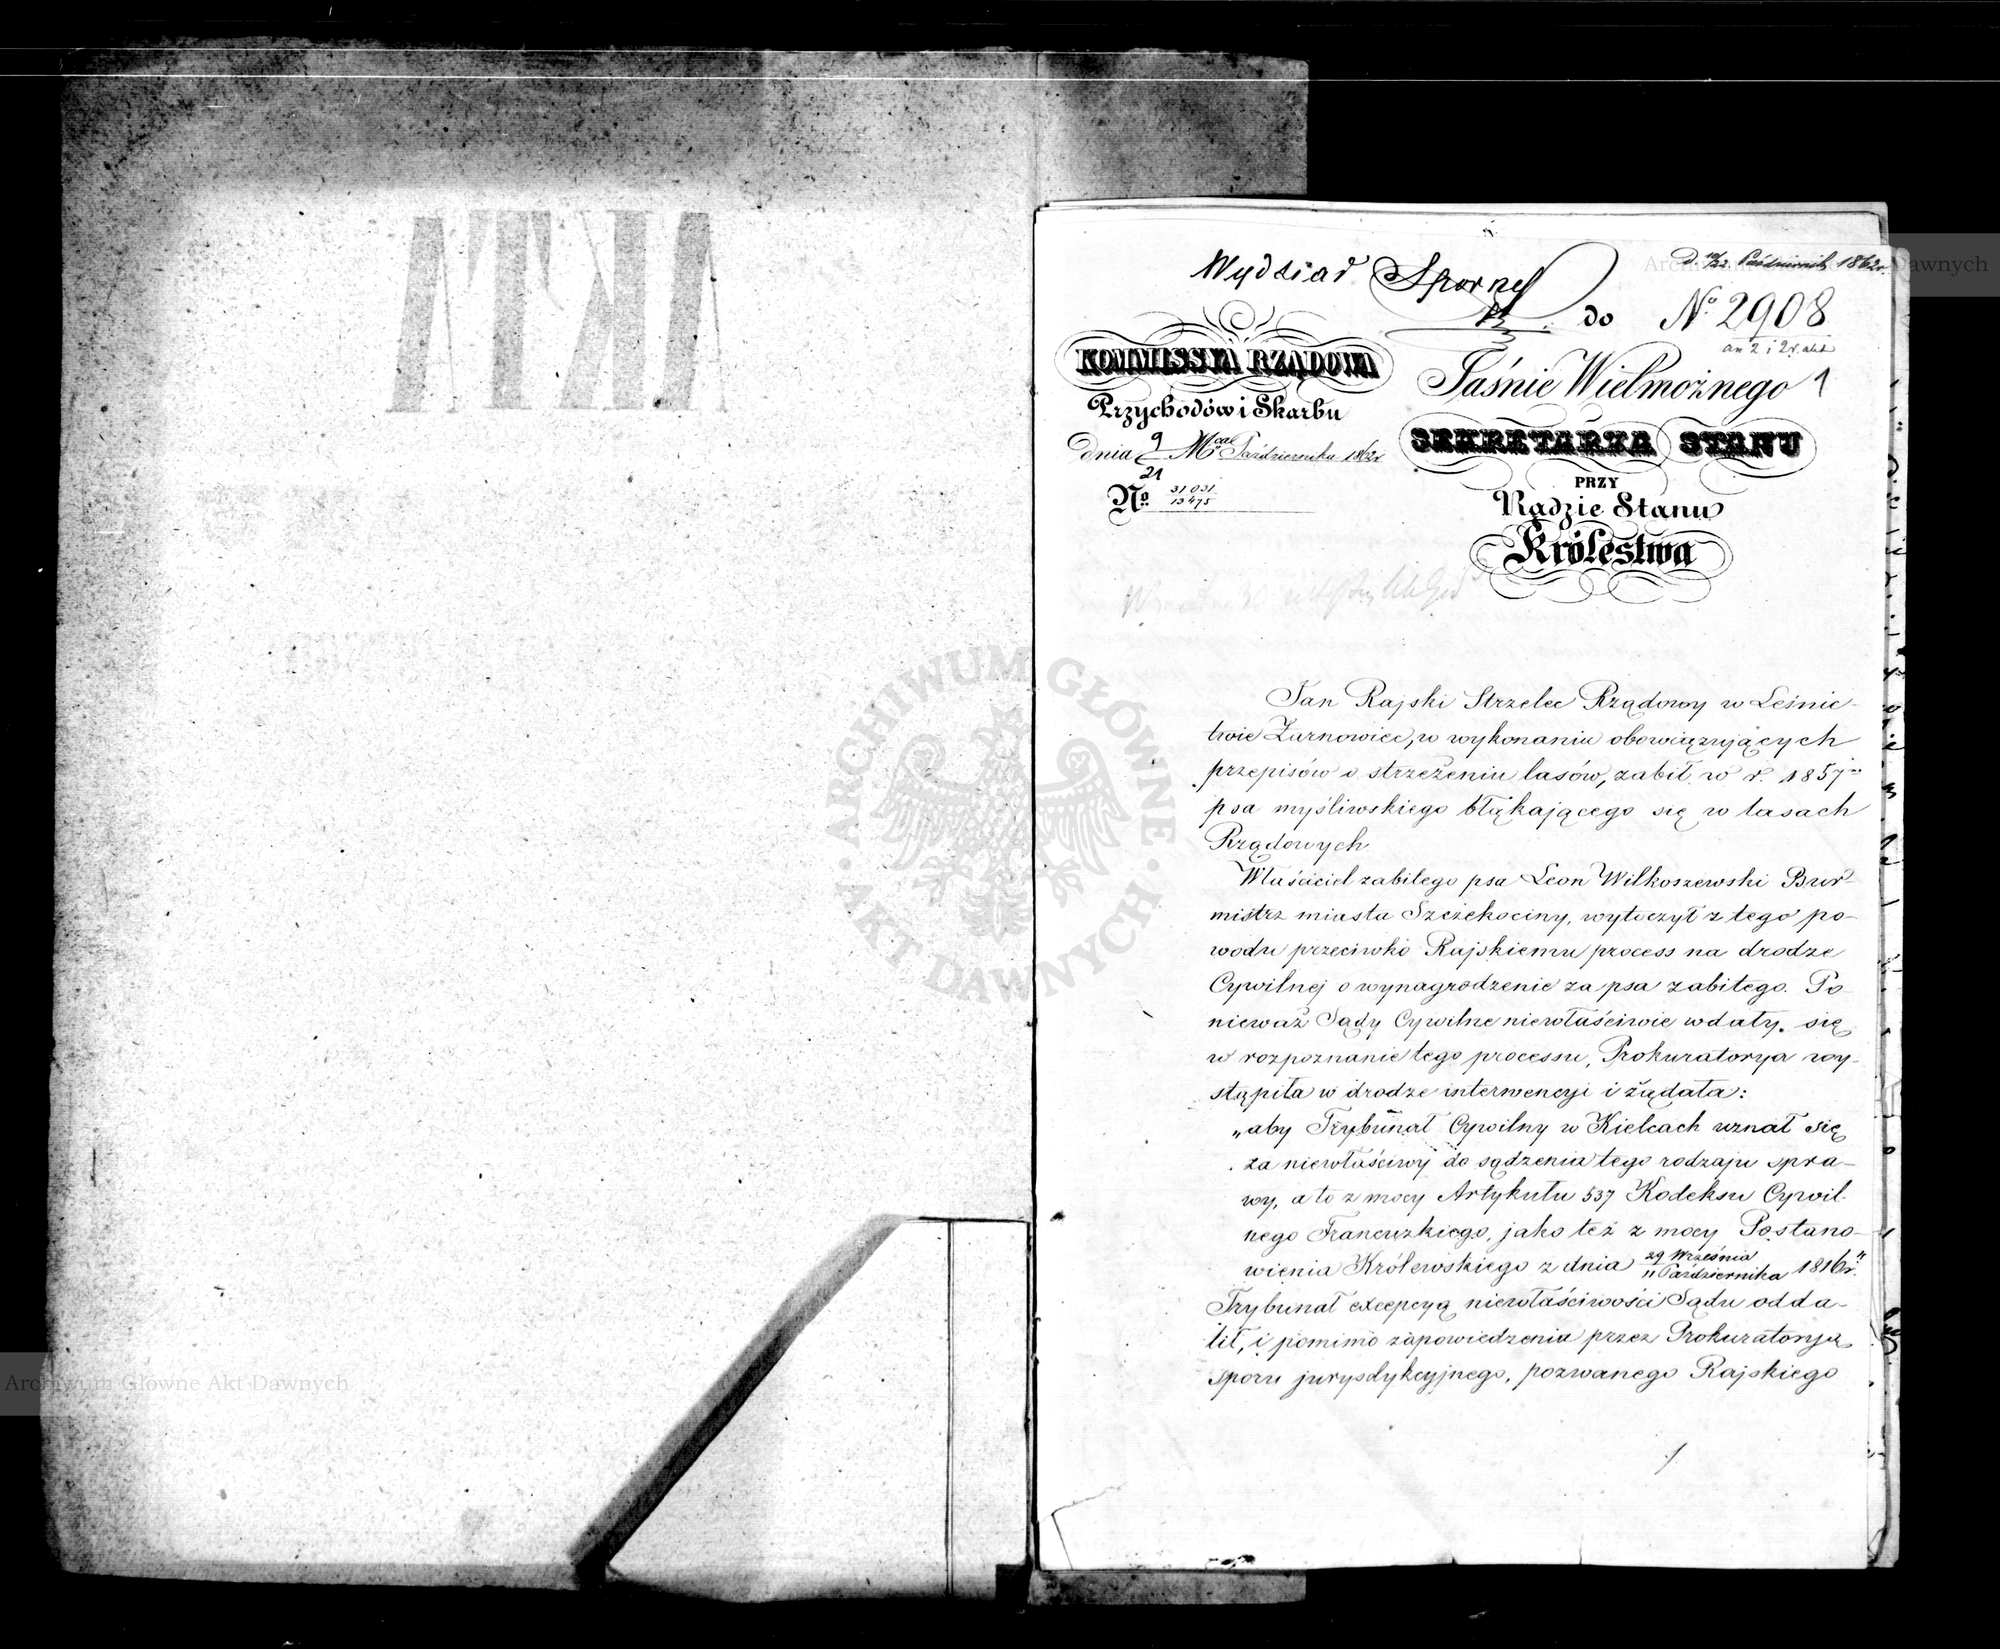 AKTA
Wydział Sporny
D. 10/22 Październik 1862 r.
do No 2908
KOMMISSYA RZĄDOWA
Przychodów i Skarbu
dnia 9/21 Mca Października 1862 r
No. 31031/13475
Jaśnie Wielmożnego 1
SEKRETARZA STANU
PRZY
Radzie Stanu
Królestwa
Jan Rajski Strzelec Rządowy w Leśnic-
twie Żarnowiec, w wykonaniu obowiązujących
przepisów o strzeżeniu lasów, zabił w r. 1857
psa myśliwskiego błąkającego się w lasach
Rządowych.
Właściciel zabitego psa Leon Wilkoszewski Bur-
mistrz miasta Szczekociny, wytoczył z tego po-
wodu przeciwko Rajskiemu process na drodze
Cywilnej o wynagrodzenie za psa zabitego. Po
nieważ Sądy Cywilne niewłaściwie wdały się
w rozpoznanie tego processu, Prokuratorya wy-
stąpiła w drodze interwencyi i żądała:
„aby Trybunał Cywilny w Kielcach uznał się
za niewłaściwy do sądzenia tego rodzaju spra-
wy, a to z mocy Artykułu 537 Kodeksu Cywil-
nego Francuzkiego, jako też z mocy Postano-
wienia Królewskiego z dnia 29 Września/11 Października 1816 r."
Trybunał excepcyą niewłaściwości Sądu odda-
lił, i pomimo zapowiedzenia przez Prokuratoryą
sporu jurysdykcyjnego, pozwanego Rajskiego
ARCHIWUM GŁÓWNE AKT DAWNYCH
Archiwum Główne Akt Dawnych
Archiwum Główne Akt Dawnych